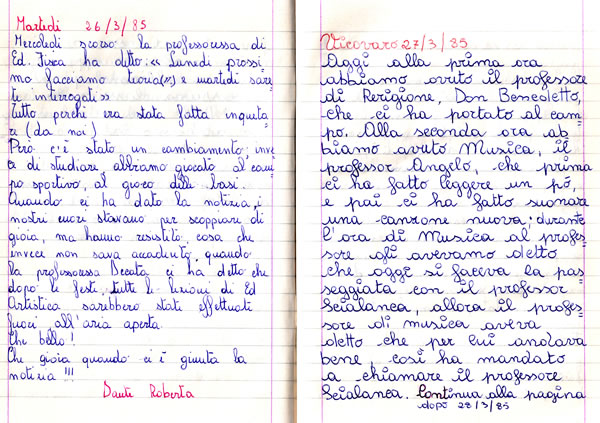 Martedì 26/3/85
Mercoledì scorso la professoressa di
Ed. Fisica ha detto: « Lunedì prossi-
mo facciamo teoria(»)e martedì sare-
te interrogati»
Tutto perchè era stata fatta inqueta-
re (da noi)
Però c'è stato un cambiamento; inve-
ce di studiare, abbiamo giocato al cam-
po sportivo, al gioco delle basi.
Quando ci ha dato la notizia, i
nostri cuori stavano per scoppiare di
gioia, ma hanno resistito, cosa che
invece non sava accaduta, quando
la professoressa ci ha detto che
dopo le feste tutte le lezioni di Ed
Artistica sarebbero state effettuati
fuori all'aria aperta.
Che bello!
Che gioia quando ci è giunta la
notizia !!!
Danti Roberta
Vicovaro 27/3/85
Oggi alla prima ora
abbiamo avuto il professore
di Rerigione, Don Benedetto,
che ci ha portato al cam-
po. Alla seconda ora ab-
biamo avuto Musica, il
professor Angelo, che prima
ci ha fatto leggere un pò,
e pai ci ha fatto suonare
una canzone nuova; durante
l'ora di Musica al profes-
sore gli avevamo detto
che oggi si faceva la pas-
seggiata con il professor
Scialanca, allora il profes-
sore di musica aveva
detto che per lui andava
bene, così ha mandato
a chiamare il professore
Scialanca. Continua alla pagina
dopo 28/3/85